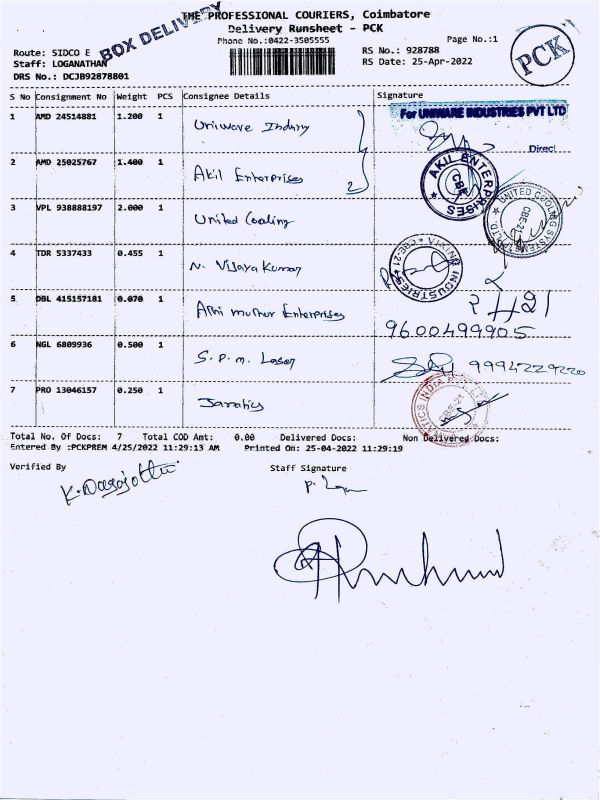 THE PROFESSIONAL COURIERS, Coimbatore
BOX DELIVERY
Delivery Runsheet - PCK
Phone No.:0422-3505555
Page No.:1
PCK
Route: SIDCO E
RS No.: 928788
Staff: LOGANATHAN
RS Date: 25-Apr-2022
DRS No.: DCJB92878801
S No Consignment No Weight PCS Consignee Details Signature
1 AMD 24514881 1.200 1 Uniware Industry For UNIWARE INDUSTRIES PVT LTD
Direct
2 AMD 25025767 1.400 1 Akil Enterprises 2 AKIL ENTERPRISES CBE
3 VPL 938888197 2.000 1 United Cooling UNITED COOLING SYSTEMS PVT LTD CBE-21
4 TDR 5337433 0.455 1 N. Vijaya Kumar VIKING INDUSTRIES CBE-21
5 DBL 415157181 0.070 1 Enterprises
9600499905
6 NGL 6809936 0.500 1 S. P. M. Laser 9994229220
7 PRO 13046157 0.250 1 INDIA CBE-21
Total No. Of Docs: 7 Total COD Amt: 0.00 Delivered Docs: Non Delivered Docs:
Entered By :PCKPREM 4/25/2022 11:29:13 AM Printed On: 25-04-2022 11:29:19
Verified By Staff Signature